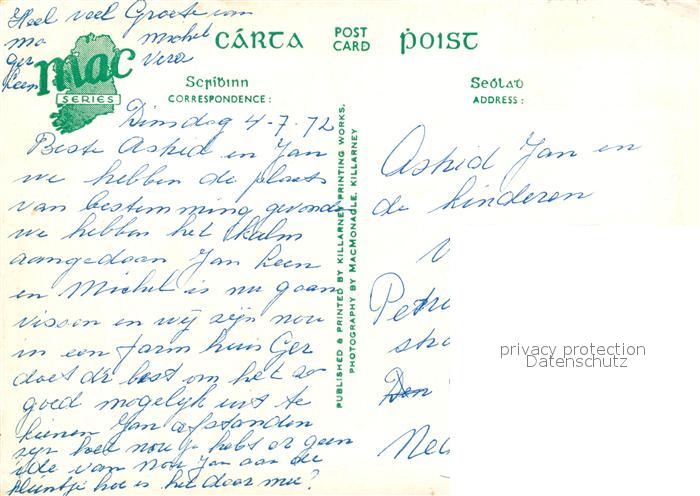 Heel veel Groete van
ma Michel
ger Vera
Leen
mac
SERIES
CÁRTA POST CARD ṖOIST
Scríbinn
CORRESPONDENCE:
Seólad
ADDRESS:
Dinsdag 4-7-72
Beste Astrid en Jan
we hebben de plaats
van bestemming gevonde
we hebben het kalm
aangedaan Jan Leen
en Michel is nu gaan
vissen en wij zijn nou
in een farm huis Ger
doet dr best om het zo
goed mogelijk uit te
kienen Jan afstanden
zijn hoel nou je hebt er geen
ide van nou Jan aan de
pluintje hoe is het daar mee?
PUBLISHED & PRINTED BY KILLARNEY PRINTING WORKS,
PHOTOGRAPHY BY MACMONAGLE, KILLARNEY
Astrid Jan en
de kinderen
Petru
stra
Den
Ned
privacy protection
Datenschutz